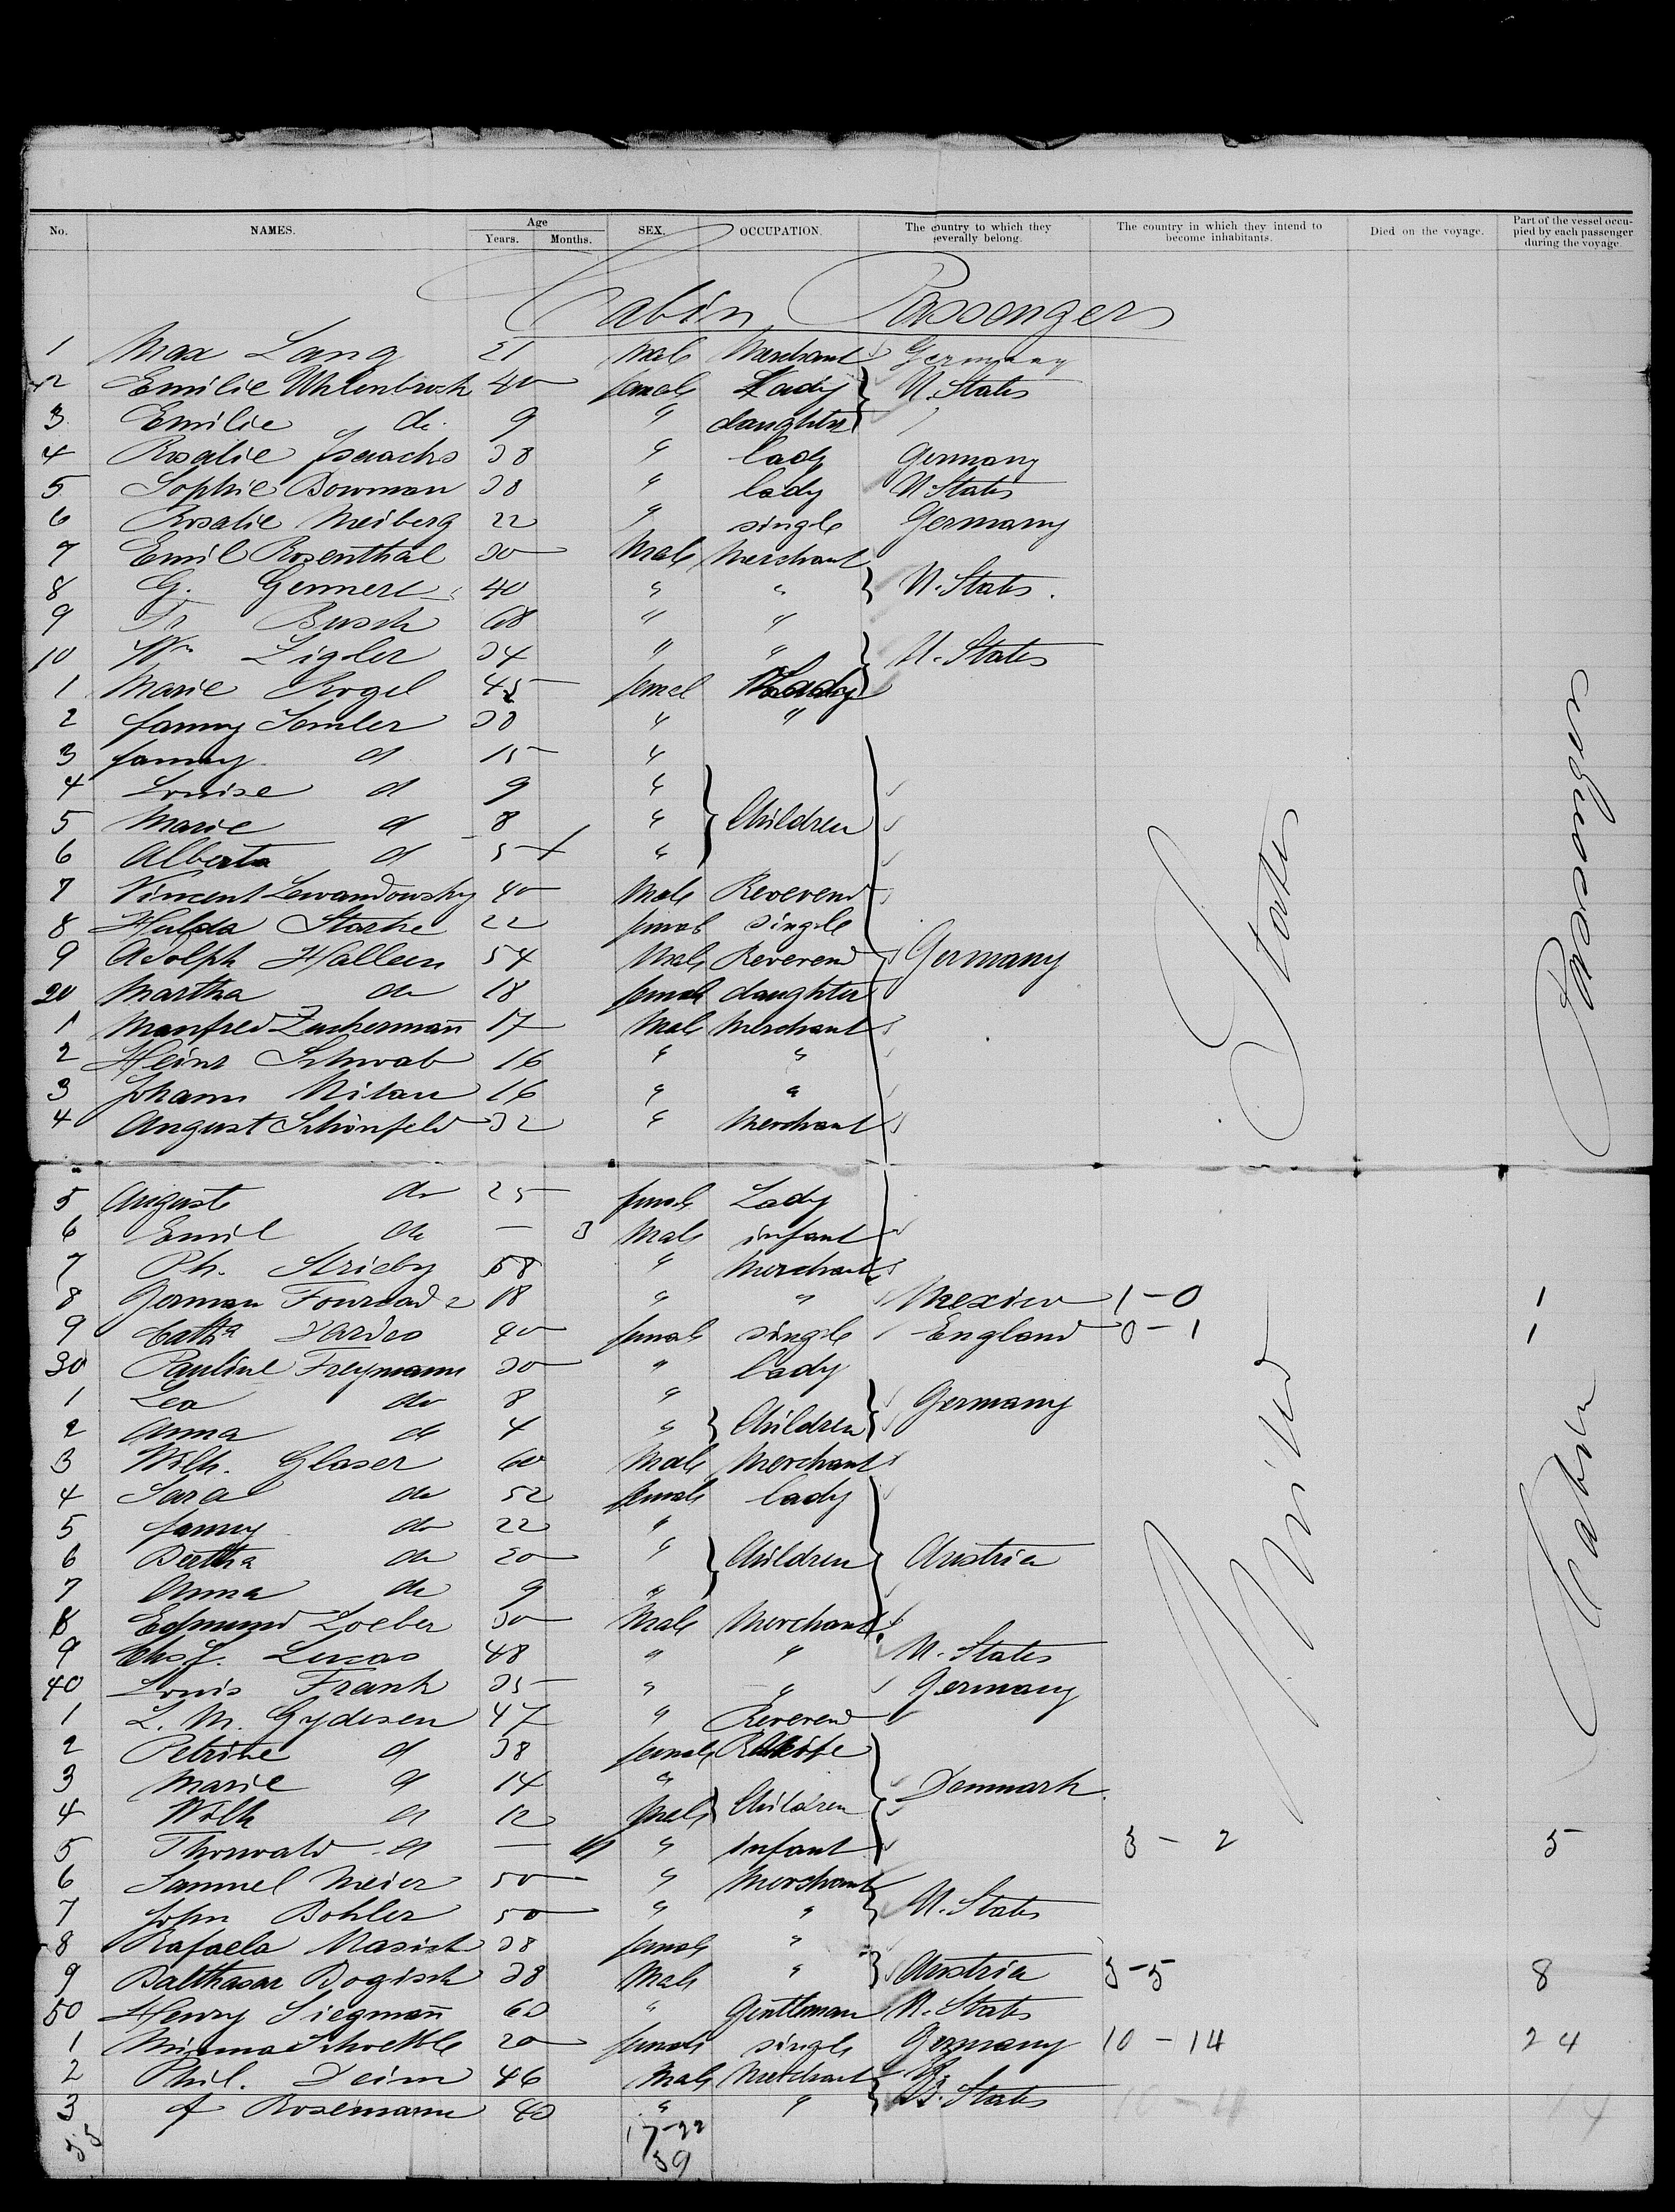 No. NAMES. Age Years. Months. SEX. OCCUPATION. The country to which they severally belong. The country in which they intend to become inhabitants. Died on the voyage. Part of the vessel occupied by each passenger during the voyage.
Cabin Passengers
1 Max Lang 21 Male Merchant Germany
2 Emilie Uhlenbrock 40 female Lady U. States
3 Emilie do. 9 " daughter
4 Rosalie Isaachs 38 " lady Germany
5 Sophie Bowman 38 " lady U States
6 Rosalie Meiberg 22 " single Germany
7 Emil Rosenthal 30 Male Merchant
8 G. Gennert 40 " " U. States.
9 Fr Busch 68 " "
10 Wm Zigler 34 " " U. States
1 Marie Rogel 45 femal Lady
2 fanny Semler 38 " "
3 fanny d 15 "
4 Louise d 9 "
5 Marie d 8 " Children
6 Alberta d 5 "
7 Vincent Lewandowsky 40 Male Reverend
8 Hulda Starke 22 female single
9 Adolph Halleen 54 Male Reverend Germany
20 Martha do 18 female daughter
1 Manfred Zuckermañ 17 Male Merchant
2 Heinr Schwab 16 " "
3 Johann Milau 16 " "
4 August Schönfeld 32 " Merchant
5 Auguste do 25 female Lady
6 Emil do — 3 Male infant
7 Ph. Strieby 58 " Merchant
8 German 18 " " Mexico 1-0 1
9 Catha 40 female single England 0-1 1
30 Pauline Freymann 30 " lady
1 Lea do 8 " Germany
2 Anna do 4 " Children
3 Wilh. Glaser 60 Male Merchant
4 Sara do 52 female lady
5 fanny do 22 "
6 Bertha do 20 " Children Austria
7 Anna do 9 "
8 Edmund Loeber 30 Male Merchant
9 Chs f. Lucas 48 " " U. States
40 Louis Frank 35 " " Germany
1 L. M. Gydesen 47 " Reverend
2 Petrine d 38 female
3 Marie d 14 " Denmark
4 Wilh d 12 Male Children
5 Thorwald d — " Infant 3 - 2 5
6 Samuel Meier 50 " Merchant
7 John Bohler 50 " " U. States
8 Rafaela Masich 38 female "
9 Balthasar Bogisch 38 Male " Austria 3-5 8
50 Henry Siegmañ 60 " Gentleman U. States
1 Minna 20 female single Germany 10 - 14 24
2 Phil. Deim 46 Male Merchant
3 Rosemann 40 " " U. States
17-22
39
United States
Cabin Passengers